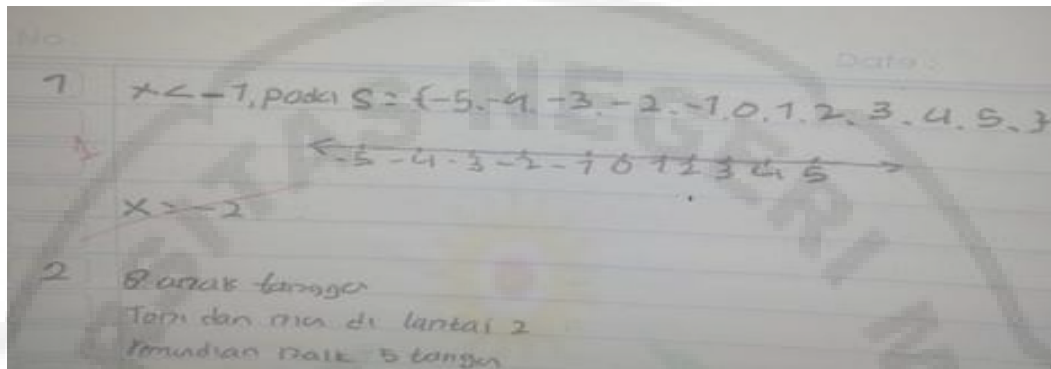 No:
Date:
1 x < -1, pada S = {-5, -4, -3, -2, -1, 0, 1, 2, 3, 4, 5, }
-5 -4 -3 -2 -1 0 1 2 3 4 5
x > -2
2 8 anak tangga
Toni dan mia di lantai 2
Kemudian naik 5 tangga